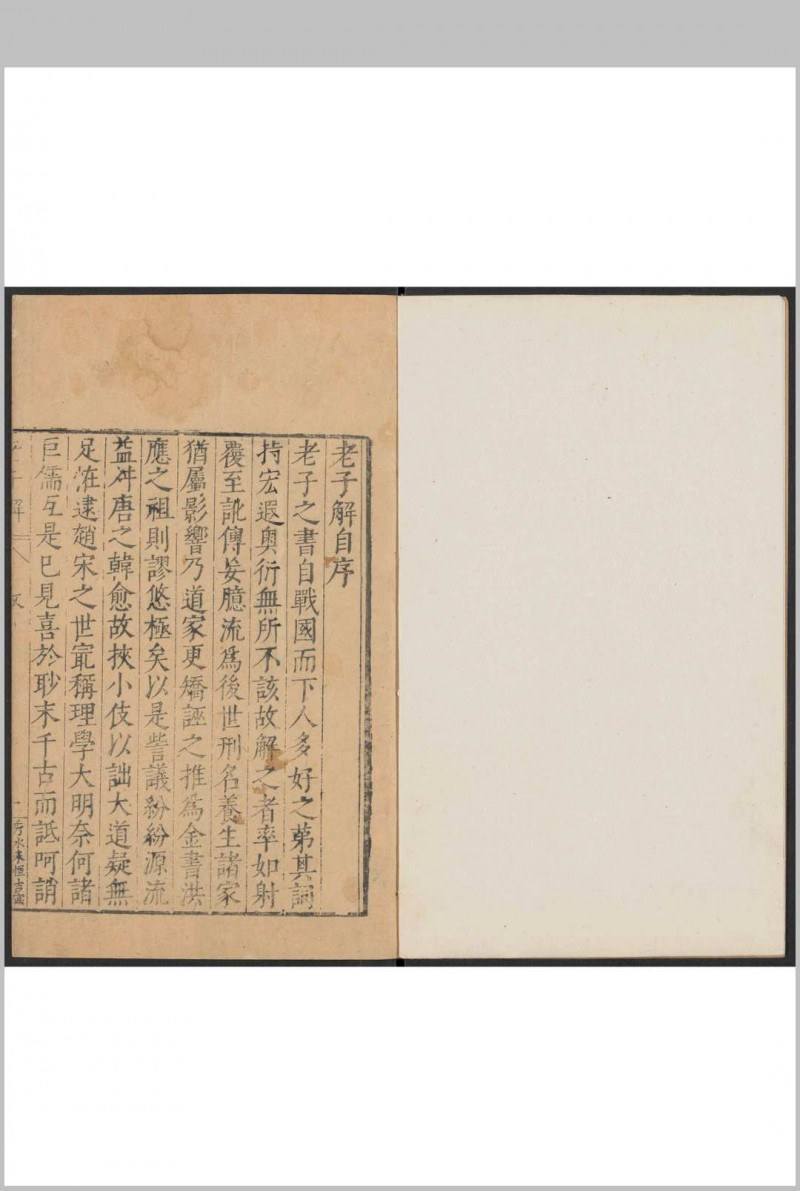 老子解自序
老子之書自戰國而下人多好之苐其詞
持宏遐奥衍無所不該故解之者率如射
覆至訛傳妄臆流爲後世刑名養生諸家
猶屬影響乃道家更矯誣之推爲金書洪
應之祖則謬悠極矣以是訾議紛紛源流
益舛唐之韓愈故挾小伎以詘大道疑無
足恠逮趙宋之世寔稱理學大明奈何諸
巨儒互是已見喜於耿末千古而詆呵誚